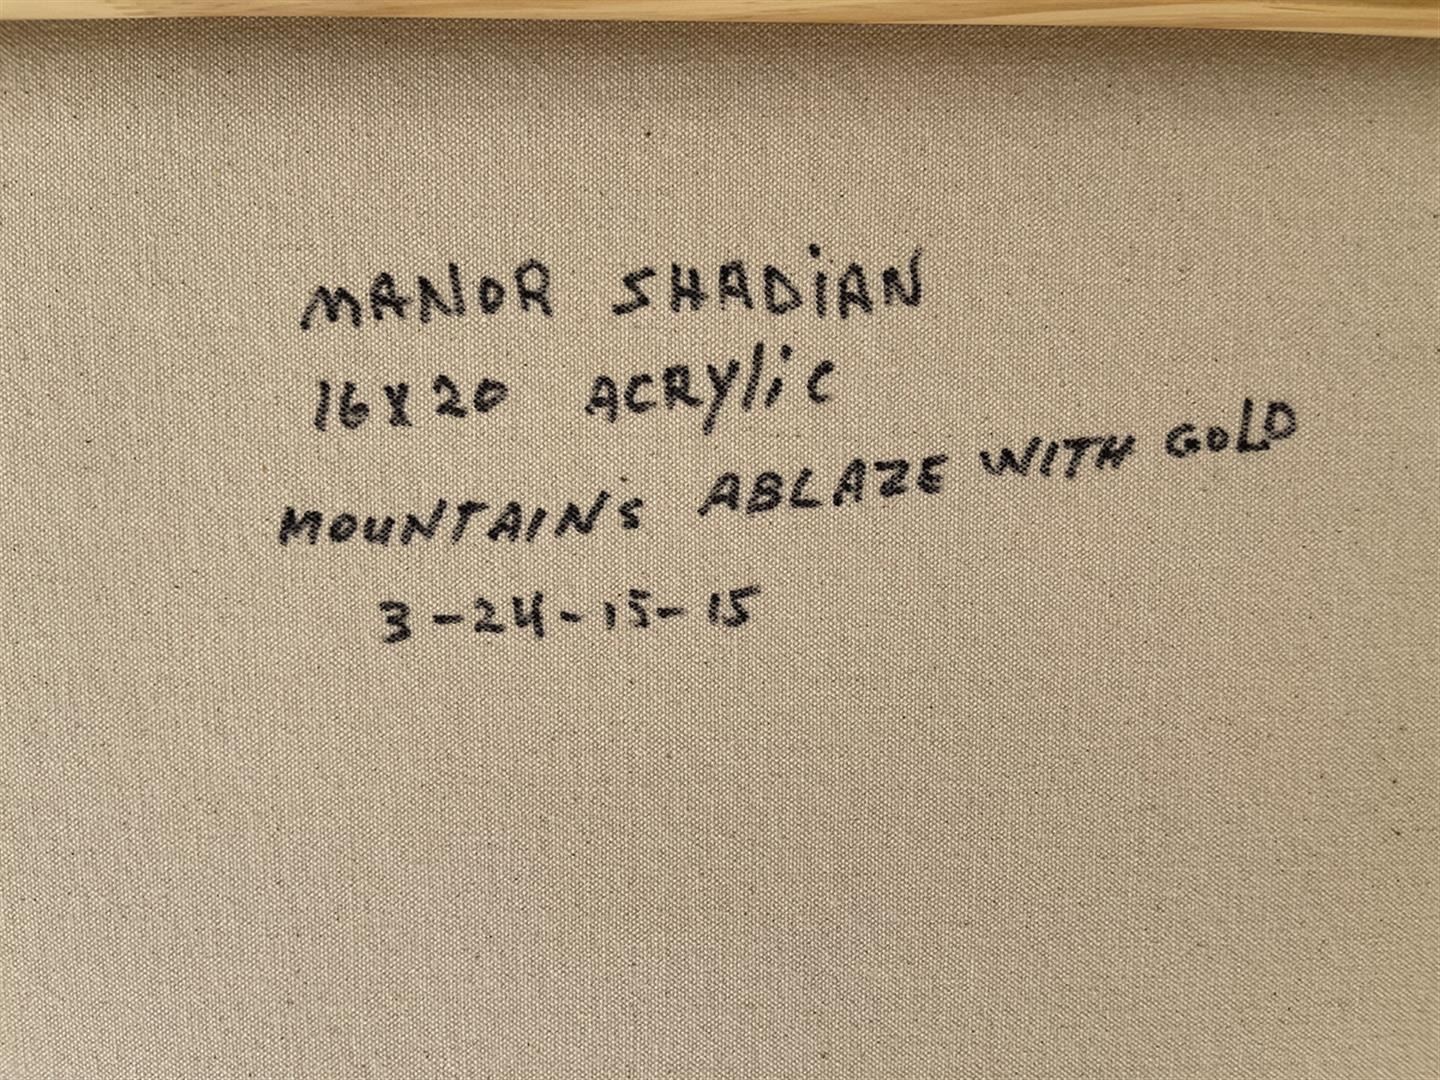 MANOR SHADiAN
16X20 ACRYlic
MOUNTAINS ABLAZE WITH GOLD
3-24-15-15